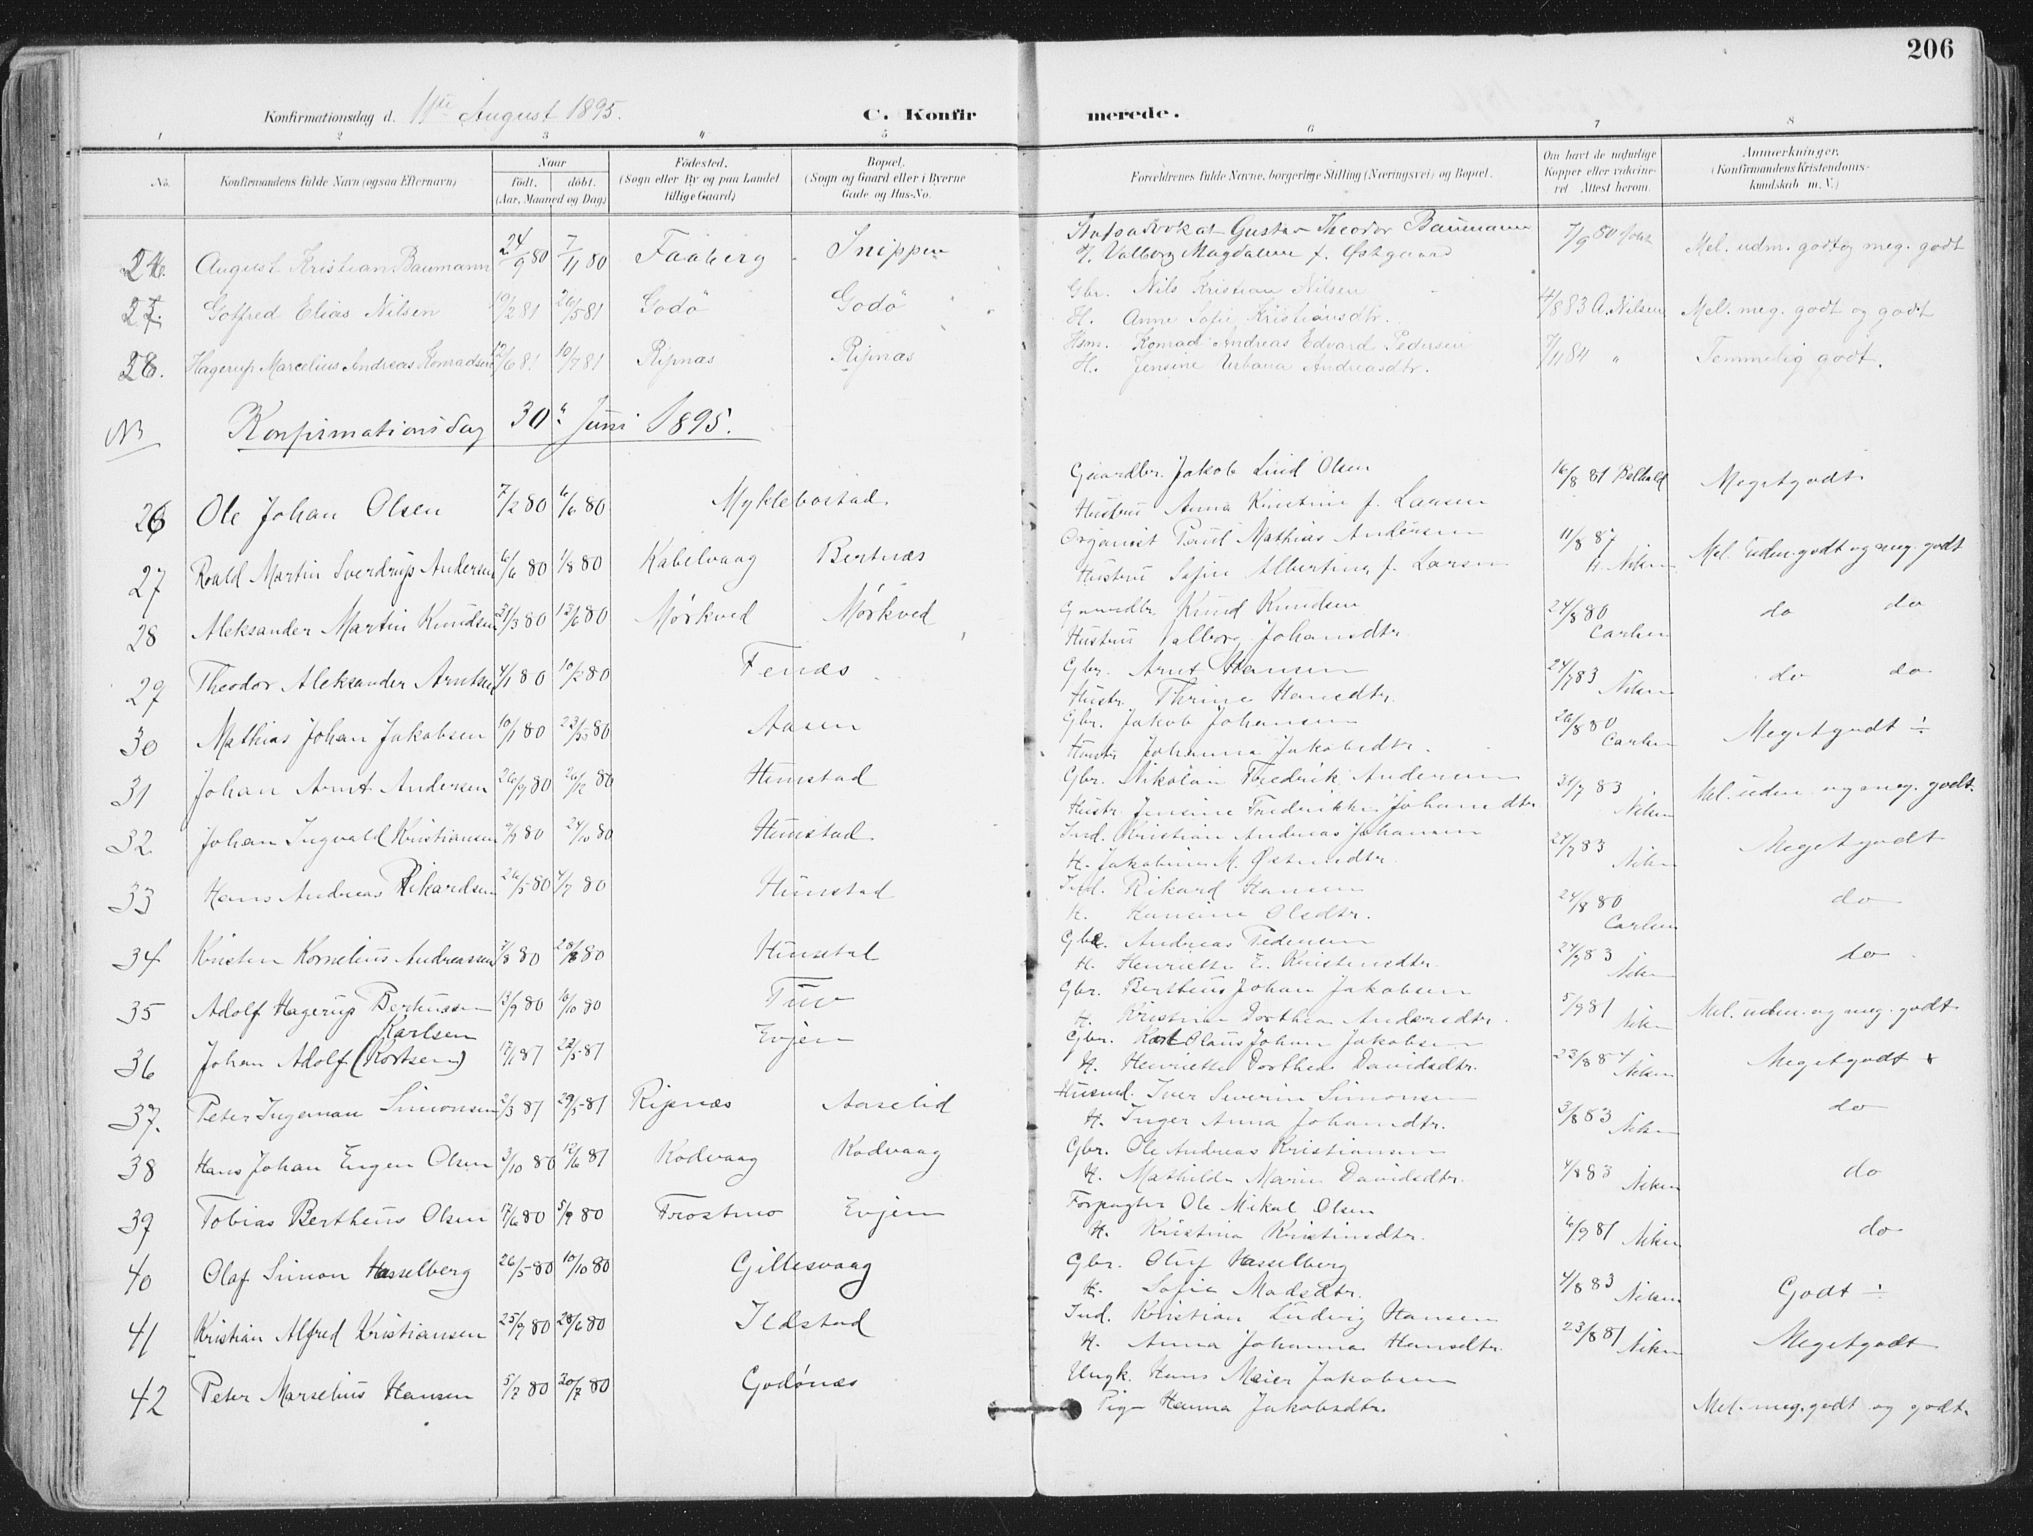 206
Konfirmationsdag d. 11te August 1895.
C. Konfirmerede.
1 2 3 4 5 6 7 8
No.
Konfirmandens fulde Navn (ogsaa Efternavn)
Naar
födt. döbt.
(Aar, Maaned og Dag)
Födested.
(Sogn eller By og paa Landet tillige Gaard)
Bopæl.
(Sogn og Gaard eller i Byerne Gade og Hus-No.
Forældrenes fulde Navne, borgerlige Stilling (Næringsvei) og Bopæl.
Om havt de naturlige Kopper eller vaccineret. Attest herom.
Anmærkninger.
(Konfirmandens Kristendomskundskab m. V.)
August Kristian Baumann 24/9 80 7/11 80 Faaberg Snippen Gustav Theodor Baumann 7/9 80 Mel. udm. godt og meg. godt
H. Valborg Magdalene f. Østgaard
27. Gotfred Elias Nilsen 10/2 81 26/5 81 Godö Godö Gbr. Nils Kristian Nilsen 4/8 83 A. Nilsen Mel. meg. godt og godt
H. Anne Sofie Kristiansdtr.
28. Hagerup Marcelius Andreas Konradsen 12/6 81 10/7 81 Ripnæs Ripnæs Hsm. Konrad Andreas Edvard Pedersen 7/11 84 " Temmelig godt.
H. Jensine Urbana Andreasdtr.
No Konfirmationsdag 30te Juni 1895.
26 Ole Johan Olsen 7/2 80 6/6 80 Myklebostad Gaardbr. Jakob Lind Olsen 16/8 81 Megetgodt
Hustru Anna Kristine f. Larsen
27 Roald Martin Sverdrup Andersen 6/6 80 1/8 80 Kabelvaag Bertnæs Organist Paul Mathias Andersen 11/8 87 Nilsen Mel. uden. godt og meg. godt
Hustru Sofie Albertine f. Larsen
28 Aleksander Martin Knudsen 21/3 80 13/6 80 Mørkved Mørkved Gaardbr. Knud Knudsen 24/8 80 Carlsen do do
Hustru Valborg Johansdtr.
29 Theodor Aleksander Arntsen 4/1 80 10/2 80 Fenæs Gbr. Arnt Hansen 24/7 83 Nilsen do do
Hustr. Thrine Hansdtr.
30 Mathias Johan Jakobsen 10/1 80 Aasen Gbr. Jakob Johansen 26/8 80 Carlsen Megetgodt ÷
Hustr. Johanna Jakobsdtr.
31 Johan Arnt Andersen 26/9 80 26/12 80 Hunstad Gbr. Nikolai Fredrik Andersen 31/7 83 Nilsen Mel. uden. og meg. godt.
Hustr. Jensine Fredrikke Johansdtr
32 Johan Ingvald Kristiansen 9/9 80 24/10 80 Hunstad Ind. Kristian Andreas Johansen 24/7 83 Nilsen Megetgodt
H. Jakobine M. Østensdtr.
33 Hans Andreas Rikardsen 26/5 80 4/7 80 Hunstad Ind. Rikard Hansen 24/8 80 Carlsen do
H. Hansine Olsdtr.
34 Kristen Kornelius Andreassen 7/8 80 28/8 80 Hunstad Gbr. Andreas Pedersen 24/7 83 Nilsen do
H. Henriette E. Kristensdtr.
35 Adolf Hagerup Bertheussen 13/9 80 16/10 80 Tuv Gbr. Bertheus Johan Jakobsen 5/9 81 Nilsen Mel. uden. og meg. godt
H. Kristine Dorthea Andersdtr.
Karlsen
36 Johan Adolf (Kortsen) 17/1 81 22/5 81 Evjen Gbr. Karl Olaus Johan Jakobsen 23/8 84 Nilsen Megetgodt
H. Henriette Dorthea Davidsdtr.
37. Peter Ingeman Simonsen 2/3 81 29/5 81 Ripnæs Aaselid Husmd. Iver Severin Simonsen 3/8 83 Nilsen do
H. Inger Anna Johansdtr.
38 Hans Johan Eugen Olsen 3/10 80 12/6 81 Kodvaag Kodvaag Gbr. Ole Andreas Kristiansen 4/8 83 Nilsen do
H. Mathilde Marie Davidsdtr.
39 Tobias Bertheus Olsen 7/6 80 5/9 80 Frostmo Evjen Forpagter Ole Mikal Olsen 6/9 81 Nilsen do
H. Kristina Kristinsdtr.
40 Olaf Simon Hasselberg 26/5 80 10/10 80 Gillesvaag Gbr. Oluf Hasselberg 4/8 83 Nilsen Godt ÷
H. Sofie Madsdtr.
41 Kristian Alfred Kristiansen 28/6 80 Ildstad Ind. Kristian Ludvig Hansen 23/8 81 Nilsen Megetgodt
H. Anna Johanna Hansdtr.
42 Peter Marselius Hansen 5/7 80 20/7 80 Godönæs Ungk. Hans Meier Jakobsen Mel. meg. godt og godt.
Pige Hanna Jakobsdtr.